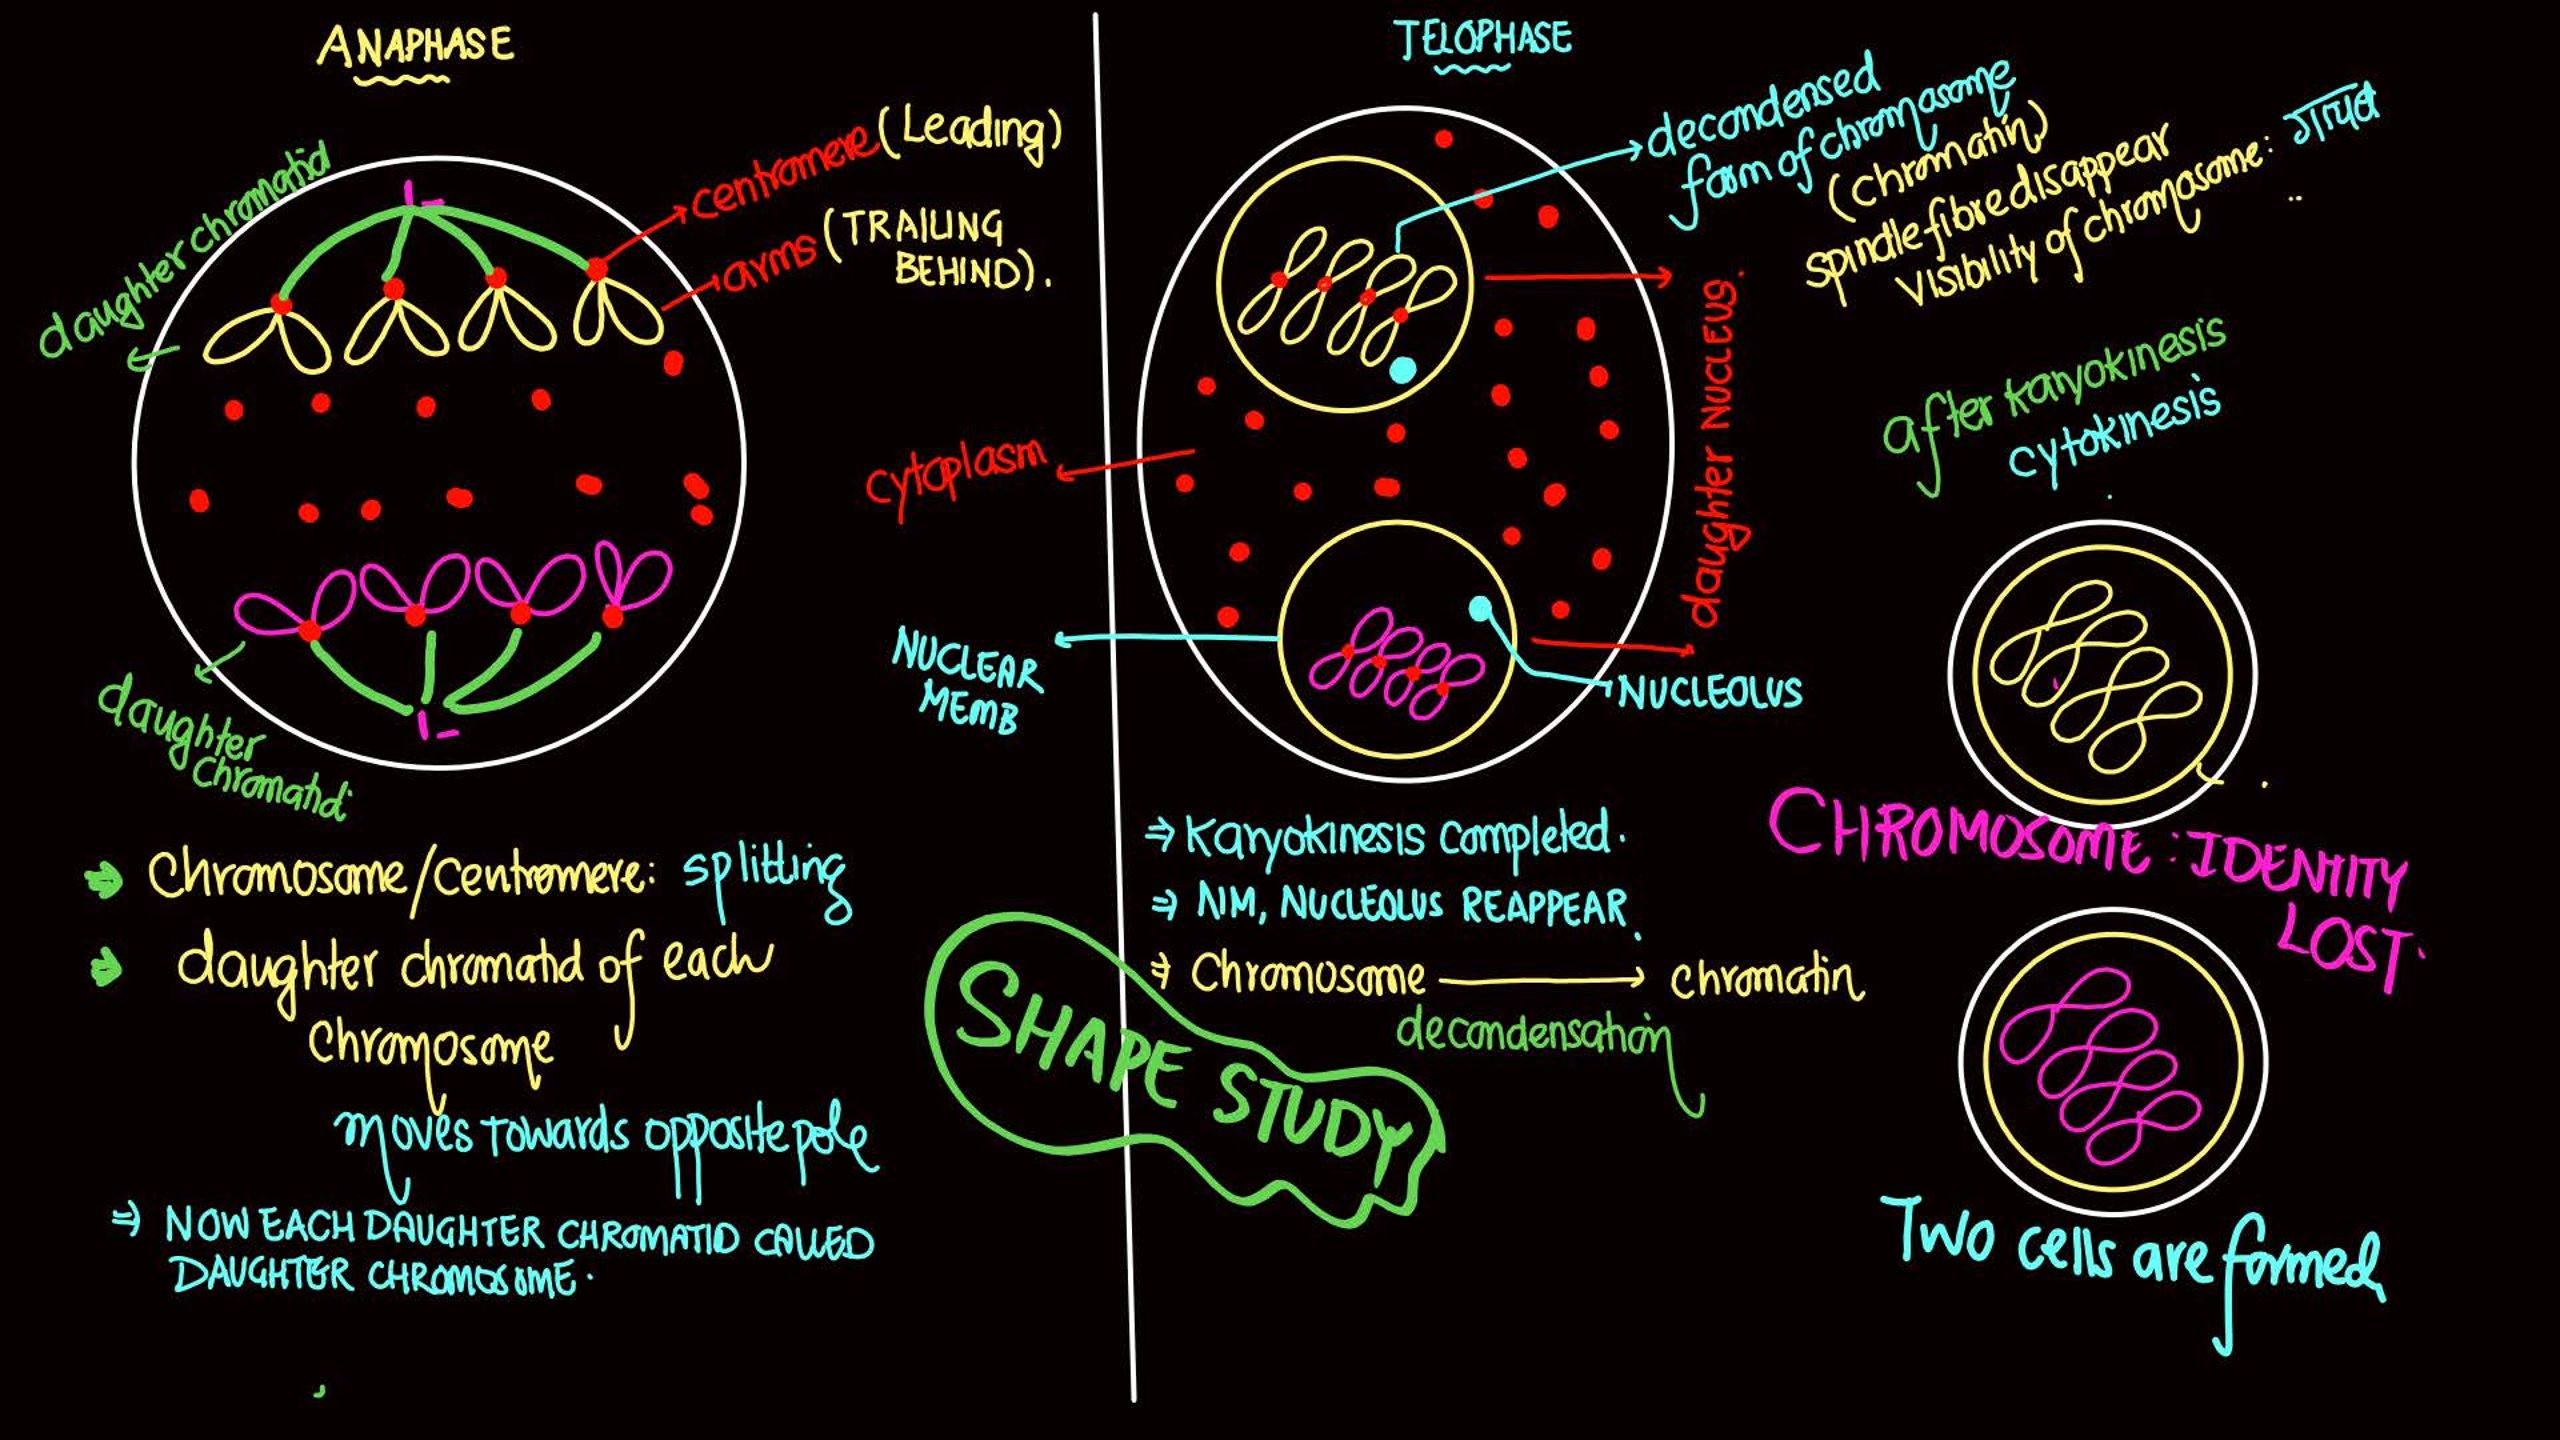 ANAPHASE
daughter chromatid
centromere (Leading)
arms (TRAILING
BEHIND).
daughter
chromatid
Chromosome/Centromere: splitting
daughter chromatid of each
chromosome
moves towards opposite pole
⇒ NOW EACH DAUGHTER CHROMATID CALLED
DAUGHTER CHROMOSOME.
TELOPHASE
decondensed
form of chromosome
(chromatin)
spindle fibre disappear
visibility of chromosome: गायब
cytoplasm
daughter NUCLEUS.
NUCLEAR
MEMB
NUCLEOLUS
⇒ Karyokinesis completed.
⇒ NM, NUCLEOLUS REAPPEAR
⇒ Chromosome → chromatin
decondensation
SHAPE STUDY
after karyokinesis
cytokinesis
CHROMOSOME: IDENTITY
LOST.
Two cells are formed